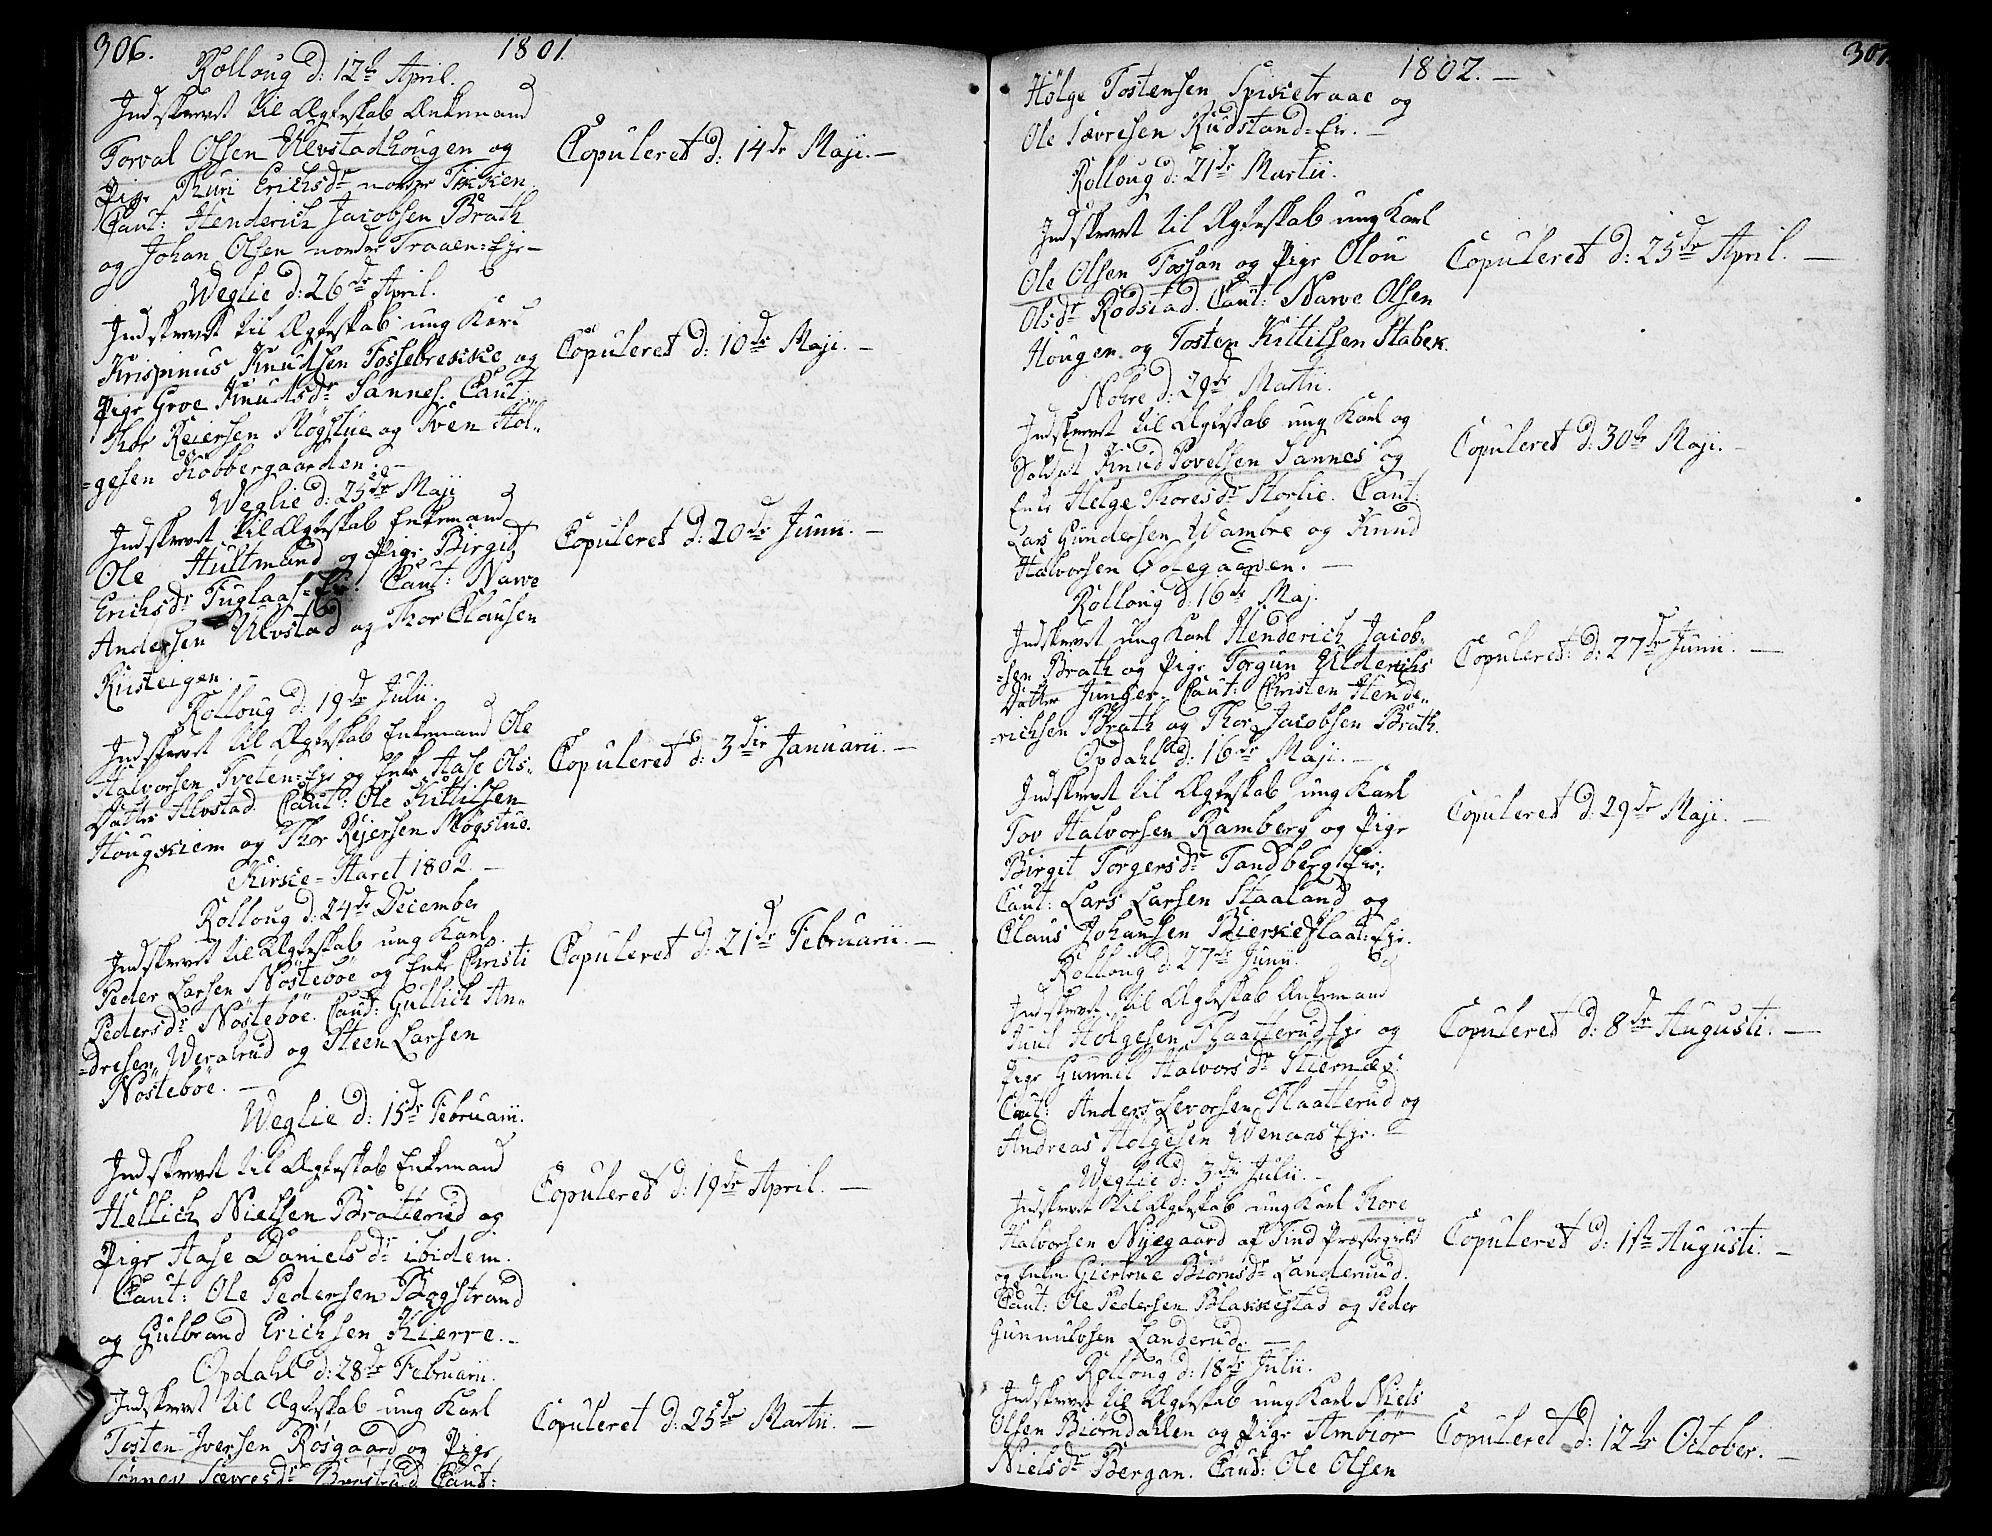 306.
1801.
Rolloug d: 12te April.
Indskrevet til Ægteskab Enkemand
Torval Olsen Ulvstadhougen og
Pige Thuri Erichsdr nordre Fikken
Caut: Henderich Jacobsen Brath
og Johan Olsen nordre Traaen=Eje-
Copuleret d: 14de Maji.-
Weglie d: 26de April.
Indskrevet til Ægteskab ung Karl
Krispinus Knudsen Fossebrekke og
Pige Groe Knudsdr Sannes. Caut:
Thor Reiersen Mogstue og Sven Hol-
-gesen Kobbergaarden:-
Copuleret d: 10de Maji.-
Weglie d: 25de Maji
Indskrevet til Ægteskab Enkemand
Ole Hultmand og Pige Birgit
Erichsdr Fuglaas=Eje. Caut: Narve
Andersen Ulvstad og Thor Clausen
Rusteigen.-
Copuleret d: 20de Junii.-
Rolloug d: 19de Julii.
Indskrevet til Ægteskab Enkemand Ole
Halvorsen Tveten=Eje og Enke Aase Ols-
Datter Alvstad. Caut: Ole Kittilsen
Hougskiem og Thor Reiersen Mogstue.
Copuleret d: 3die Januarii.-
Kirke=Aaret 1802.-
Rolloug d: 24de December
Indskrevet til Ægteskab ung Karl
Peder Larsen Nösteböe og Enke Christi
Pedersdr Nösteböe. Caut: Gullich An-
-dresen Weralrud og Steen Larsen
Nösteböe.-
Copuleret d: 21de Februarii.-
Weglie d: 15de Februarii.
Indskrevet til Ægteskab Enkemand
Hellich Nielsen Bratterud og
Pige Aase Danielsdr ibidem.
Caut: Ole Pedersen Bogstrand
og Gulbrand Erichsen Kierre.-
Copuleret d: 19de April.-
Opdahl d: 28de Februarii.
Indskrevet til Ægteskab ung Karl
Tosten Iversen Rosgaard og Pige
Tonnev Sævresdr Caut:
Copuleret d: 25de Martii.-
1802.-
307.
Holge Tostensen Spiketraae og
Ole Sævresen Rudstand=Eje.-
Rolloug d: 21de Martii.
Indskrevet til Ægteskab ung Karl
Ole Olsen Fossan og Pige Olou
Olsdr Rodstad. Caut: Narve Olsen
Hougen og Tosten Kittilsen Stabek.
Copuleret d: 25de April.-
Nohre d: 29de Martii.
Indskrevet til Ægteskab ung Karl og
Soldat Knud Povelsen Sannes og
Enke Helge Thoresdr Storlie. Caut:
Lars Gundersen Wambre og Knud
Halvorsen Golegaarden.-
Copuleret d: 30te Maji.-
Rolloug d: 16de Maj.
Indskrevet ung Karl Henderich Jacob-
-sen Brath og Pige Torgun Ulderichs
Datter Junger. Caut: Christen Hende-
-richsen Brath og Thor Jacobsen Brath.
Copuleret: d: 27de Junii.-
Opdahl d: 16de Maji.-
Indskrevet til Ægteskab ung Karl
Tov Halvorsen Ramberg og Pige
Birgit Torgersdr Tandberg Eje:
Caut: Lars Larsen Staaland og
Claus Johansen Bierkeflaat=Eje.
Copuleret d: 29de Maji.-
Rolloug d: 27de Junii.
Indskrevet til Ægteskab Enkemand
Juul Holgesen Flaatterud Eje og
Pige Gunnil Halvorsdr Stiernæs.
Caut: Anders Levorsen Flaatterud og
Andreas Holgesen Wenaas Eje.-
Copuleret d: 8de Augusti.-
Weglie d: 3die Julii.-
Indskrevet til Ægteskab ung Karl Thore
Halvorsen Nyegaard af Tind Præstegield
og Enke Giertrue Biörnsdr Landerud.
Caut: Ole Pedersen Blakkestad og Peder
Gunnulvsen Landerud.-
Copuleret d: 1ste Augusti.-
Rolloug d: 18de Julii.
Indskrevet til Ægteskab ung Karl Niels
Olsen Biörndahlen og Pige Ambiör
Nielsdr Bergan. Caut: Ole Olsen
Copuleret d: 12te October.-